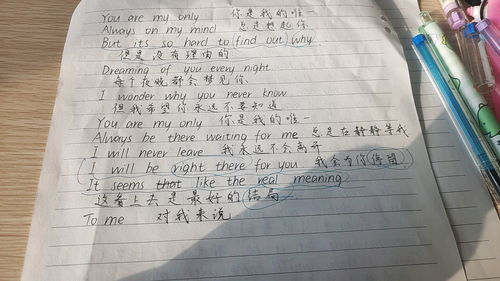 You are my only 你是我的唯一
Always on my mind 总是想起你
But its so hard to find out why
但是没有理由的
Dreaming of you every night
每个夜晚都会梦见你
I wonder why you never know
但我希望你永远不要知道
You are my only 你是我的唯一
Always be there waiting for me 总是在静静等我
I will never leave 我永远不会离开
I will be right there for you 我会为你停留
It seems that like the real meaning
这看上去是最好的结局
To me 对我来说